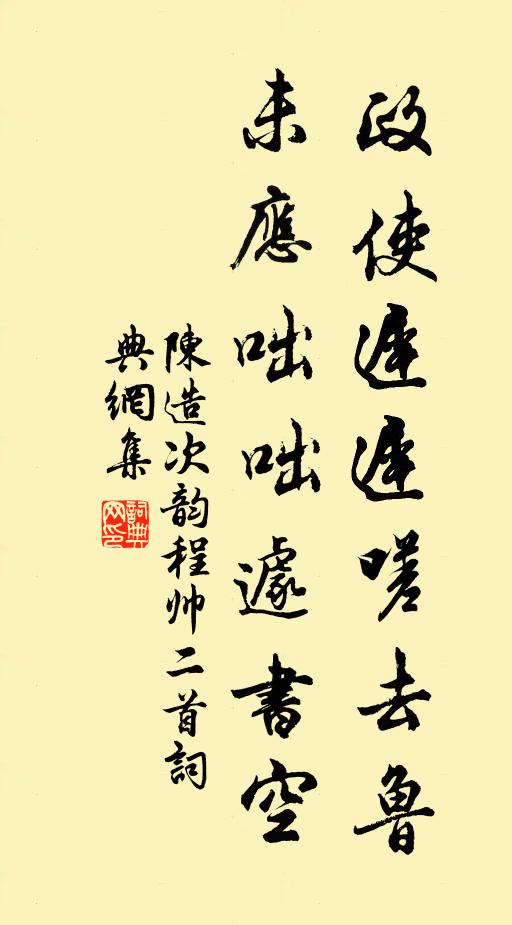 政使遲遲嗟去魯
未應咄咄遽書空
陳造次韵程帅二首詞
典網集
詞典網印